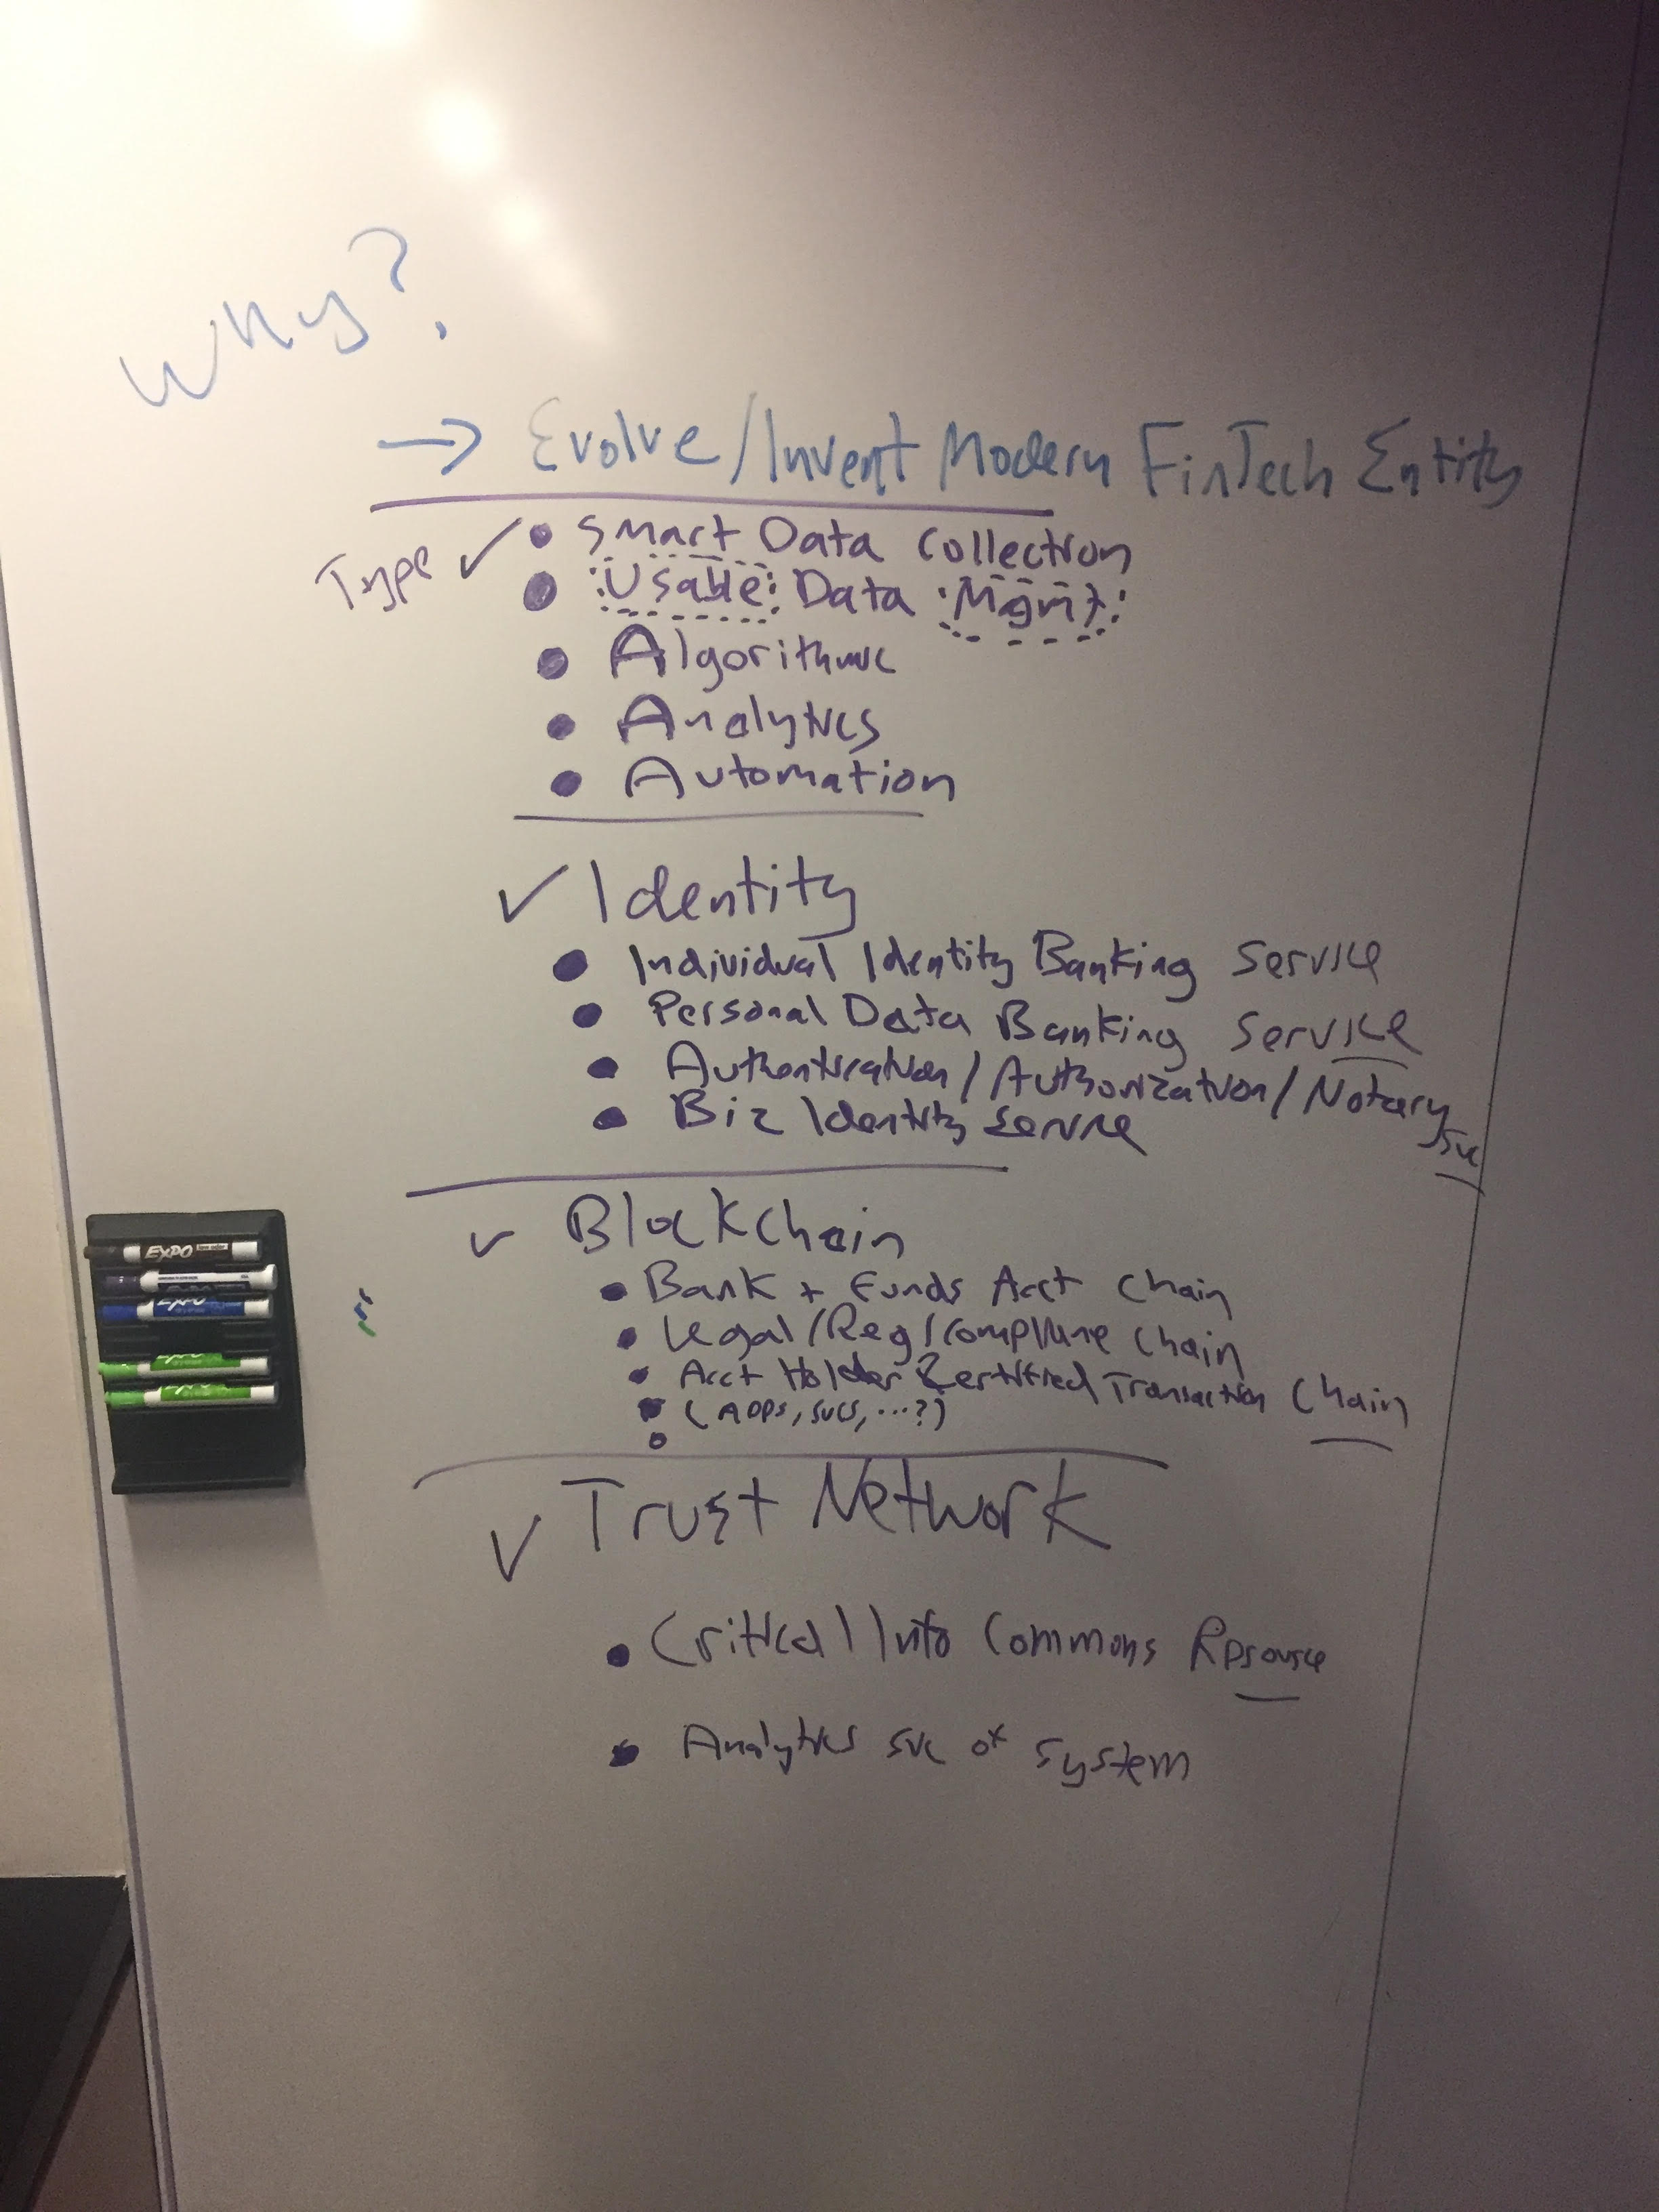 Why?
→ Evolve/Invent Modern FinTech Entity
Type ✓ • Smart Data Collection
• Usable Data Mgmt
• Algorithmic
• Analytics
• Automation
✓ Identity
• Individual Identity Banking Service
• Personal Data Banking Service
• Authentication/Authorization/Notary Svc
• Biz Identity Service
✓ Blockchain
• Bank + Funds Acct Chain
• Legal/Reg/Compliance Chain
• Acct Holder Certified Transaction Chain
• (Apps, svcs, ...?)
◦
✓ Trust Network
• Critical Info Commons Resource
• Analytics svc of System
EXPO
EXPO